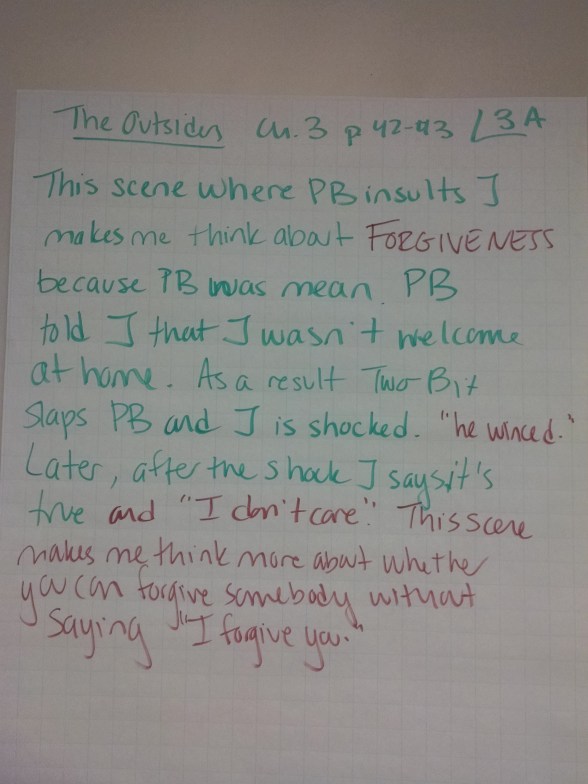 The Outsiders Ch. 3 p 42-43 L3A
This scene where PB insults J
makes me think about FORGIVENESS
because PB was mean. PB
told J that J wasn't welcome
at home. As a result Two-Bit
slaps PB and J is shocked. "he winced."
Later, after the shock J says it's
true and "I don't care". This scene
makes me think more about whether
you can forgive somebody without
saying "I forgive you."